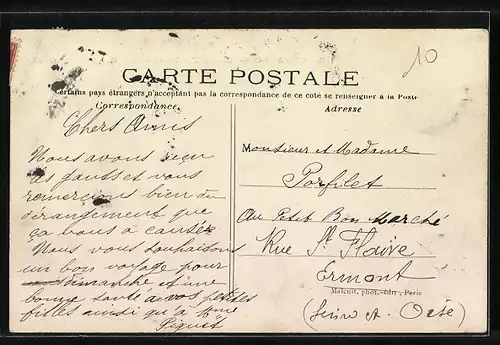 10
CARTE POSTALE
Certains pays étrangers n'acceptant pas la correspondance de ce coté se renseigner à la Poste
Correspondance
Adresse
Chers Amis
Nous avons reçu
les gants et vous
remerçions bien du
dérangement que
ça vous à causé
Nous vous souhaitons
un bon voyage pour
dimanche et une
bonne santé a vos petites
filles ainsi qu'à Mme
Piquet
Monsieur et Madame
Porfilet
Au Petit Bon Marché
Rue St Flaive
Ermont
Malcuit, phot.-édit, Paris
(Seine et Oise)